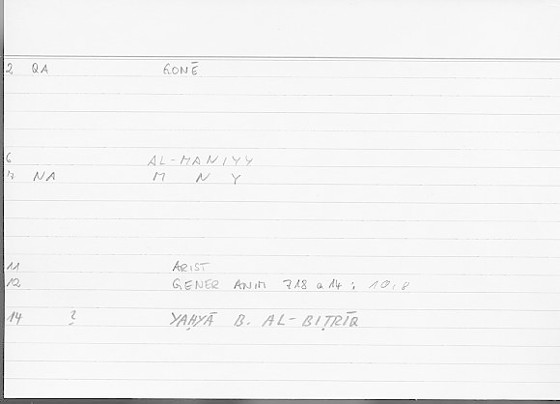 2 QA GONĒ
6 AL-MANIYY
7 NA M N Y
11 ARIST
12 GENER ANIM 718 a 14 : 10,8
14 ? YAḤYĀ B. AL-BIṬRĪQ